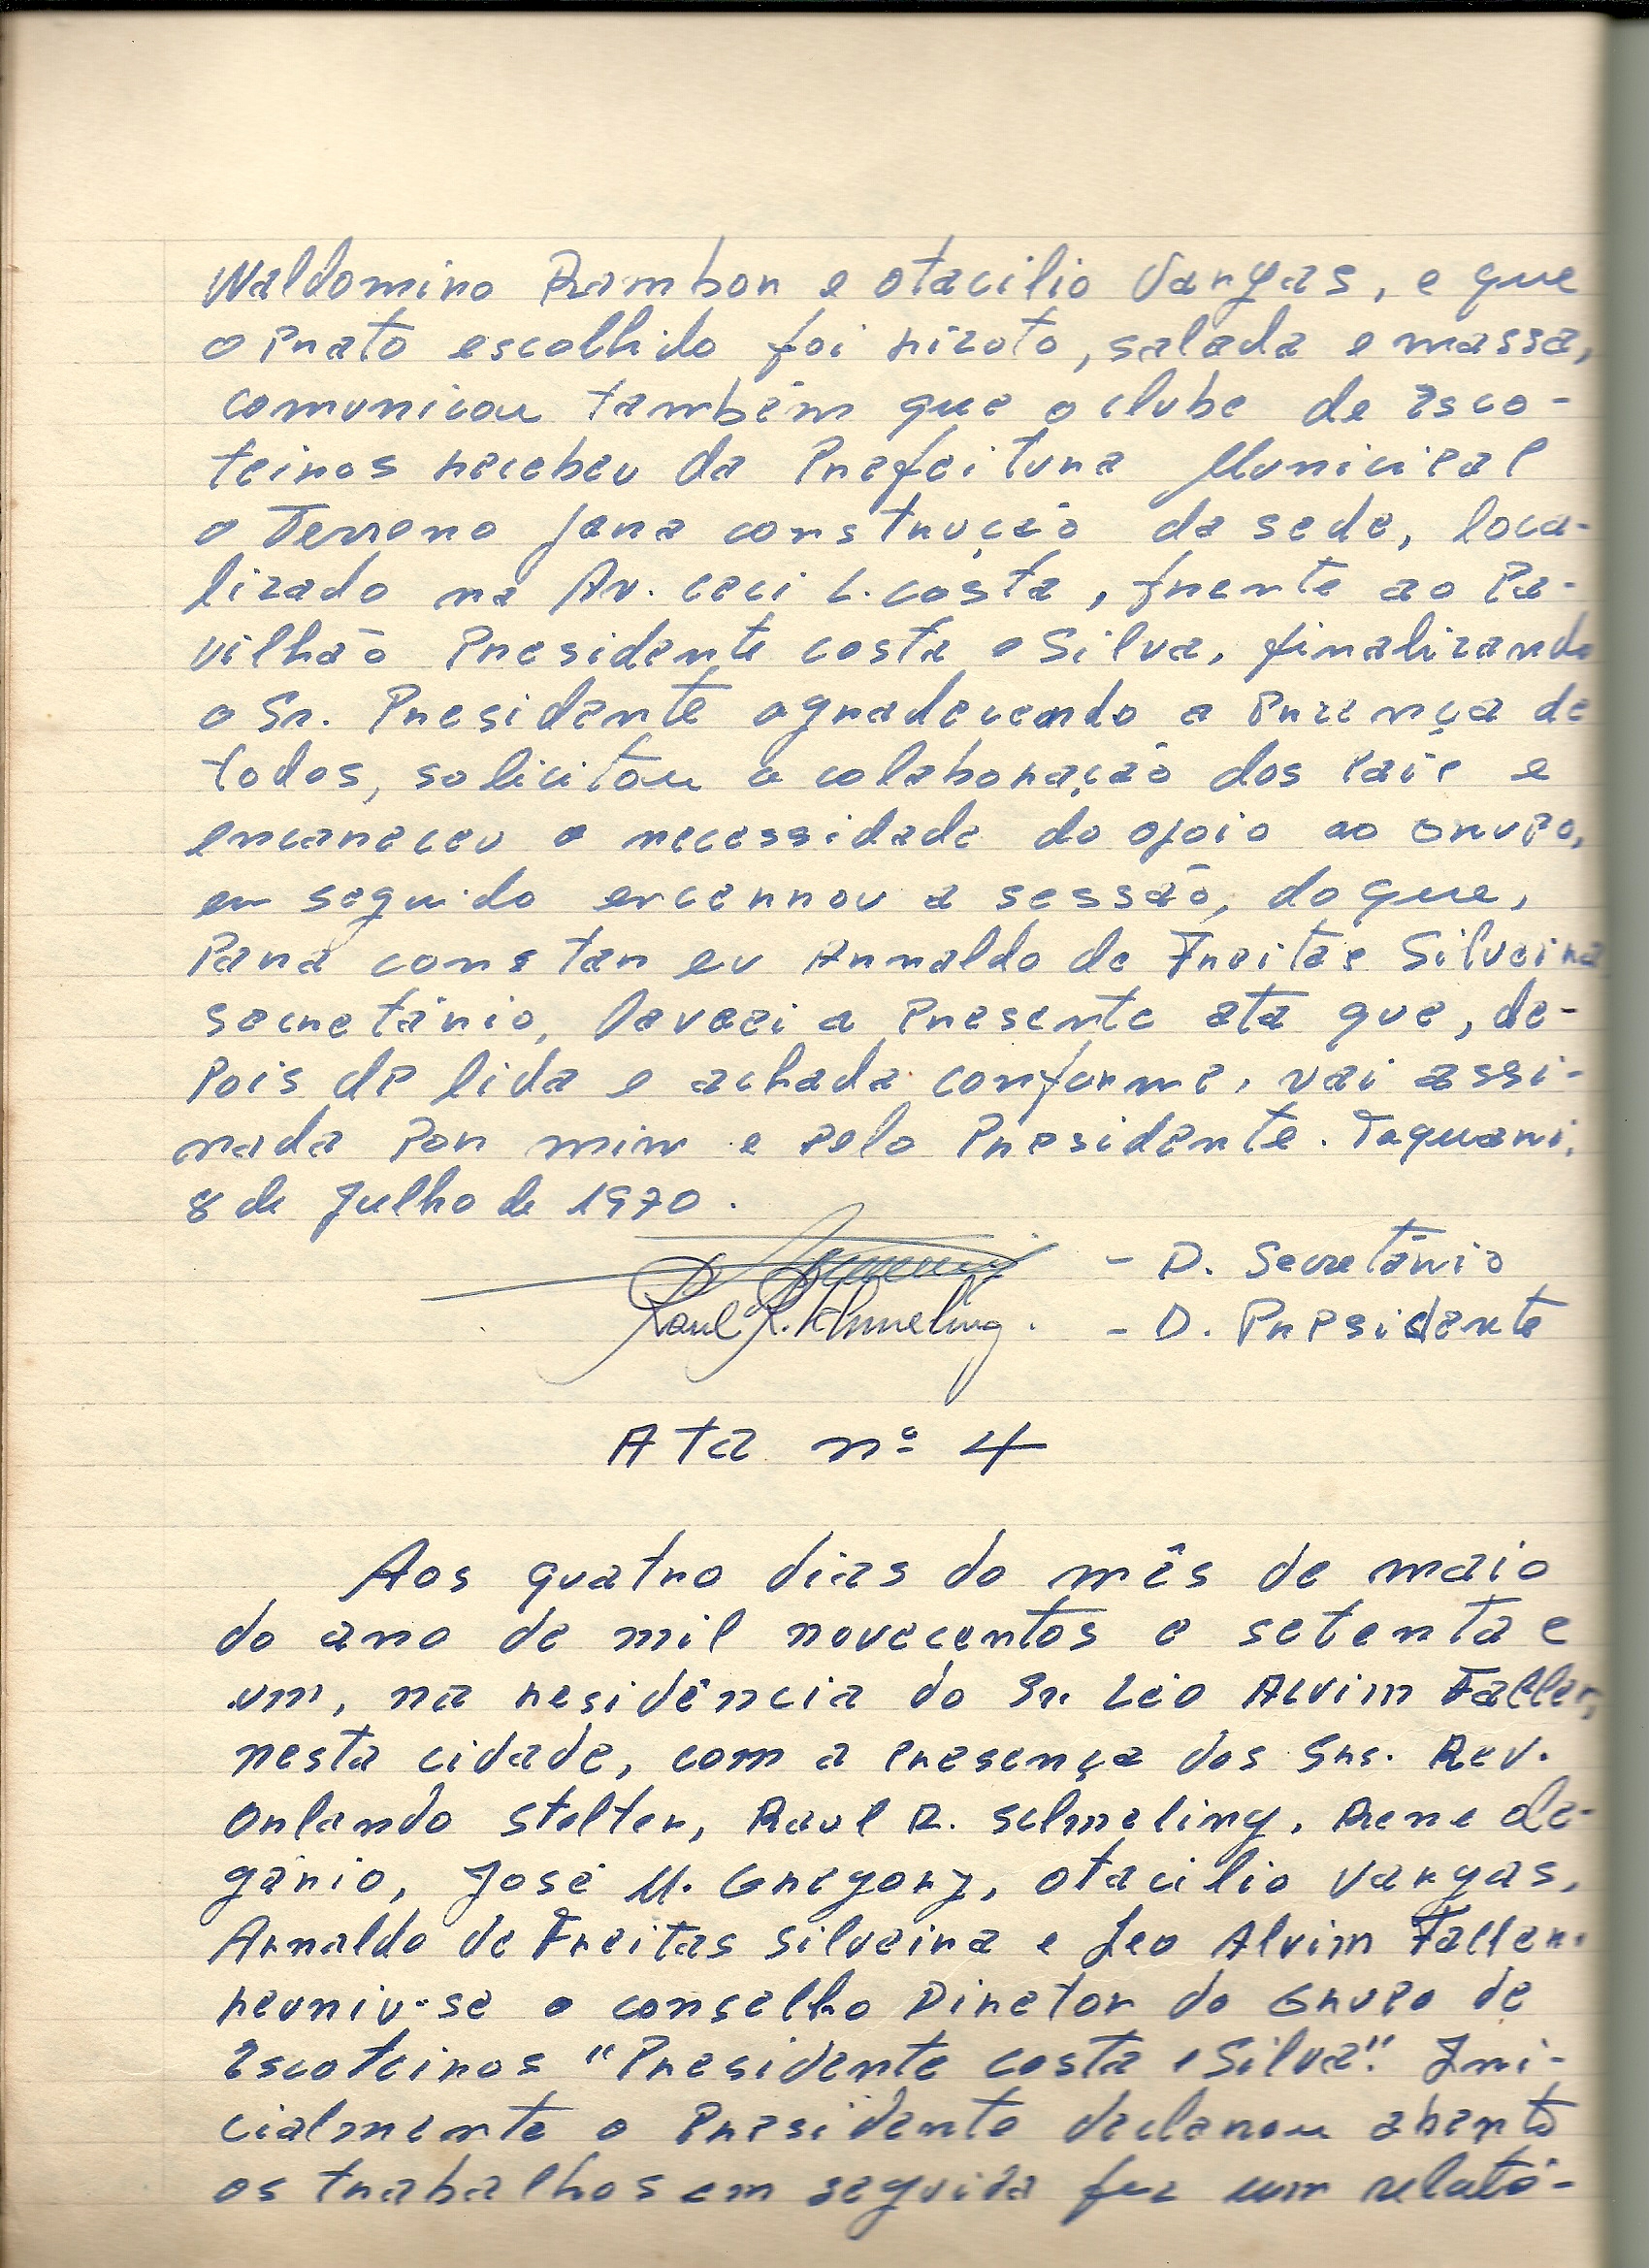 Waldomiro Rambor e Otacilio Vargas, e que
o prato escolhido foi rizoto, salada e massa,
comunicou também que o clube de Esco-
teiros recebeu da Prefeitura Municipal
o Terreno para construção da sede, loca-
lizado na Av. Ceci L. Costa, frente ao Pa-
vilhão Presidente Costa e Silva, finalizando
o Sr. Presidente agradecendo a prezença de
todos, solicitou a colaboração dos pais e
encareceu a necessidade do apoio ao Grupo,
em seguida encerrou a sessão, do que,
para constar eu Arnaldo de Freitas Silveira
secretário, lavrei a presente ata que, de-
pois de lida e achada conforme, vai assi-
nada por mim e pelo Presidente. Taquari,
8 de Julho de 1970.
- D. Secretário
Raul R. Schmeling. - D. Presidente
Ata nº 4
Aos quatro dias do mês de maio
do ano de mil novecentos e setenta e
um, na residência do Sr. Léo Alvim Faller,
nesta cidade, com a presença dos Srs. Rev.
Orlando Stelter, Raul R. Schmeling, Rene De-
gário, José M. Gregory, Otacilio Vargas,
Arnaldo de Freitas Silveira e Leo Alvim Faller.
reuniu-se o conselho Diretor do Grupo de
Escoteiros "Presidente Costa e Silva". Ini-
cialmente o Presidente declarou aberto
os trabalhos em seguida fez um relató-